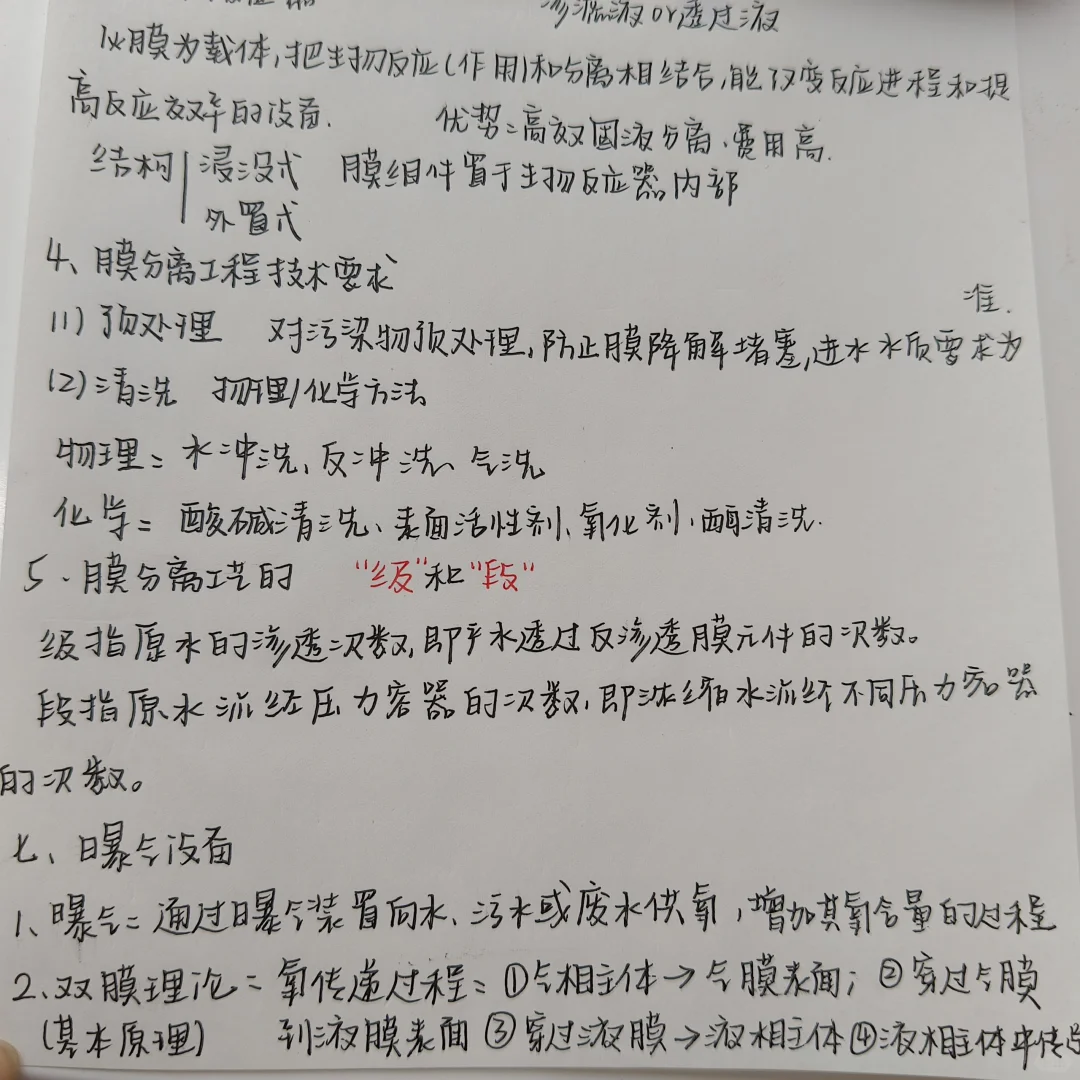 渗漏液or透过液
以膜为载体,把生物反应(作用)和分离相结合,能改变反应进程和提
高反应效率的设备. 优势:高效固液分离.费用高.
结构 浸没式 膜组件置于生物反应器内部
外置式
4、膜分离工程技术要求
准.
(1) 预处理 对污染物预处理,防止膜降解堵塞,进水水质要求为
(2)清洗 物理/化学方法
物理:水冲洗、反冲洗、气洗
化学:酸碱清洗、表面活性剂、氧化剂、酶清洗.
5.膜分离工艺的 "级"和"段"
级指原水的渗透次数,即产水透过反渗透膜元件的次数。
段指原水流经压力容器的次数,即浓缩水流经不同压力容器
的次数。
七、曝气设备
1、曝气:通过曝气装置向水、污水或废水供氧,增加其氧含量的过程
2.双膜理论:氧传递过程:①气相主体→气膜表面;②穿过气膜
(基本原理) 到液膜表面 ③穿过液膜→液相主体④液相主体中传